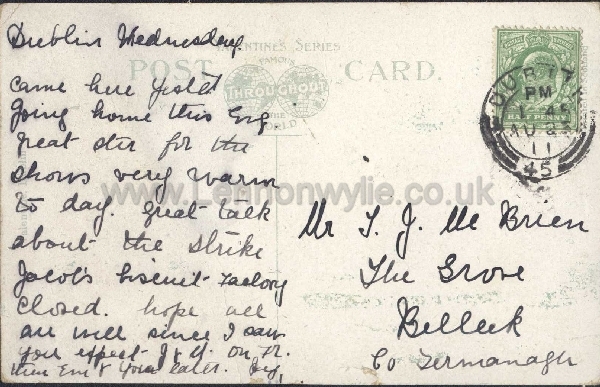 Dublin Wednesday.
VALENTINE'S SERIES
POST CARD.
FAMOUS
THROUGHOUT
THE
WORLD
Came here yestd
going home this Evg
great stir for the
shows very warm
to day. great talk
about the strike
Jacob's biscuit factory
closed. hope all
are well since I saw
you expect J & M. on Fr.
then Em & you later.
Mr T. J. Mc Brien
The Grove
Belleek
Co Fermanagh
HALF PENNY
PM
AU
11
45
www.Lennonwylie.co.uk